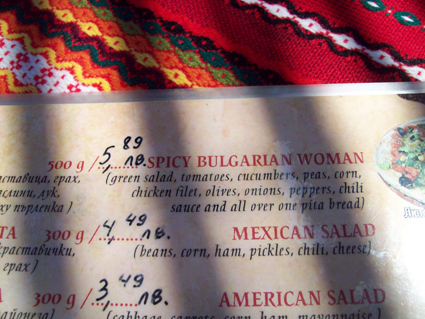 500 g / 5,89 лв. SPICY BULGARIAN WOMAN
(green salad, tomatoes, cucumbers, peas, corn,
chicken filet, olives, onions, peppers, chili
sauce and all over one pita bread)
300 g / 4,49 лв. MEXICAN SALAD
(beans, corn, ham, pickles, chili, cheese)
300 g / 3,49 лв. AMERICAN SALAD
(cabbage, carrots, corn, ham, mayonnaise)